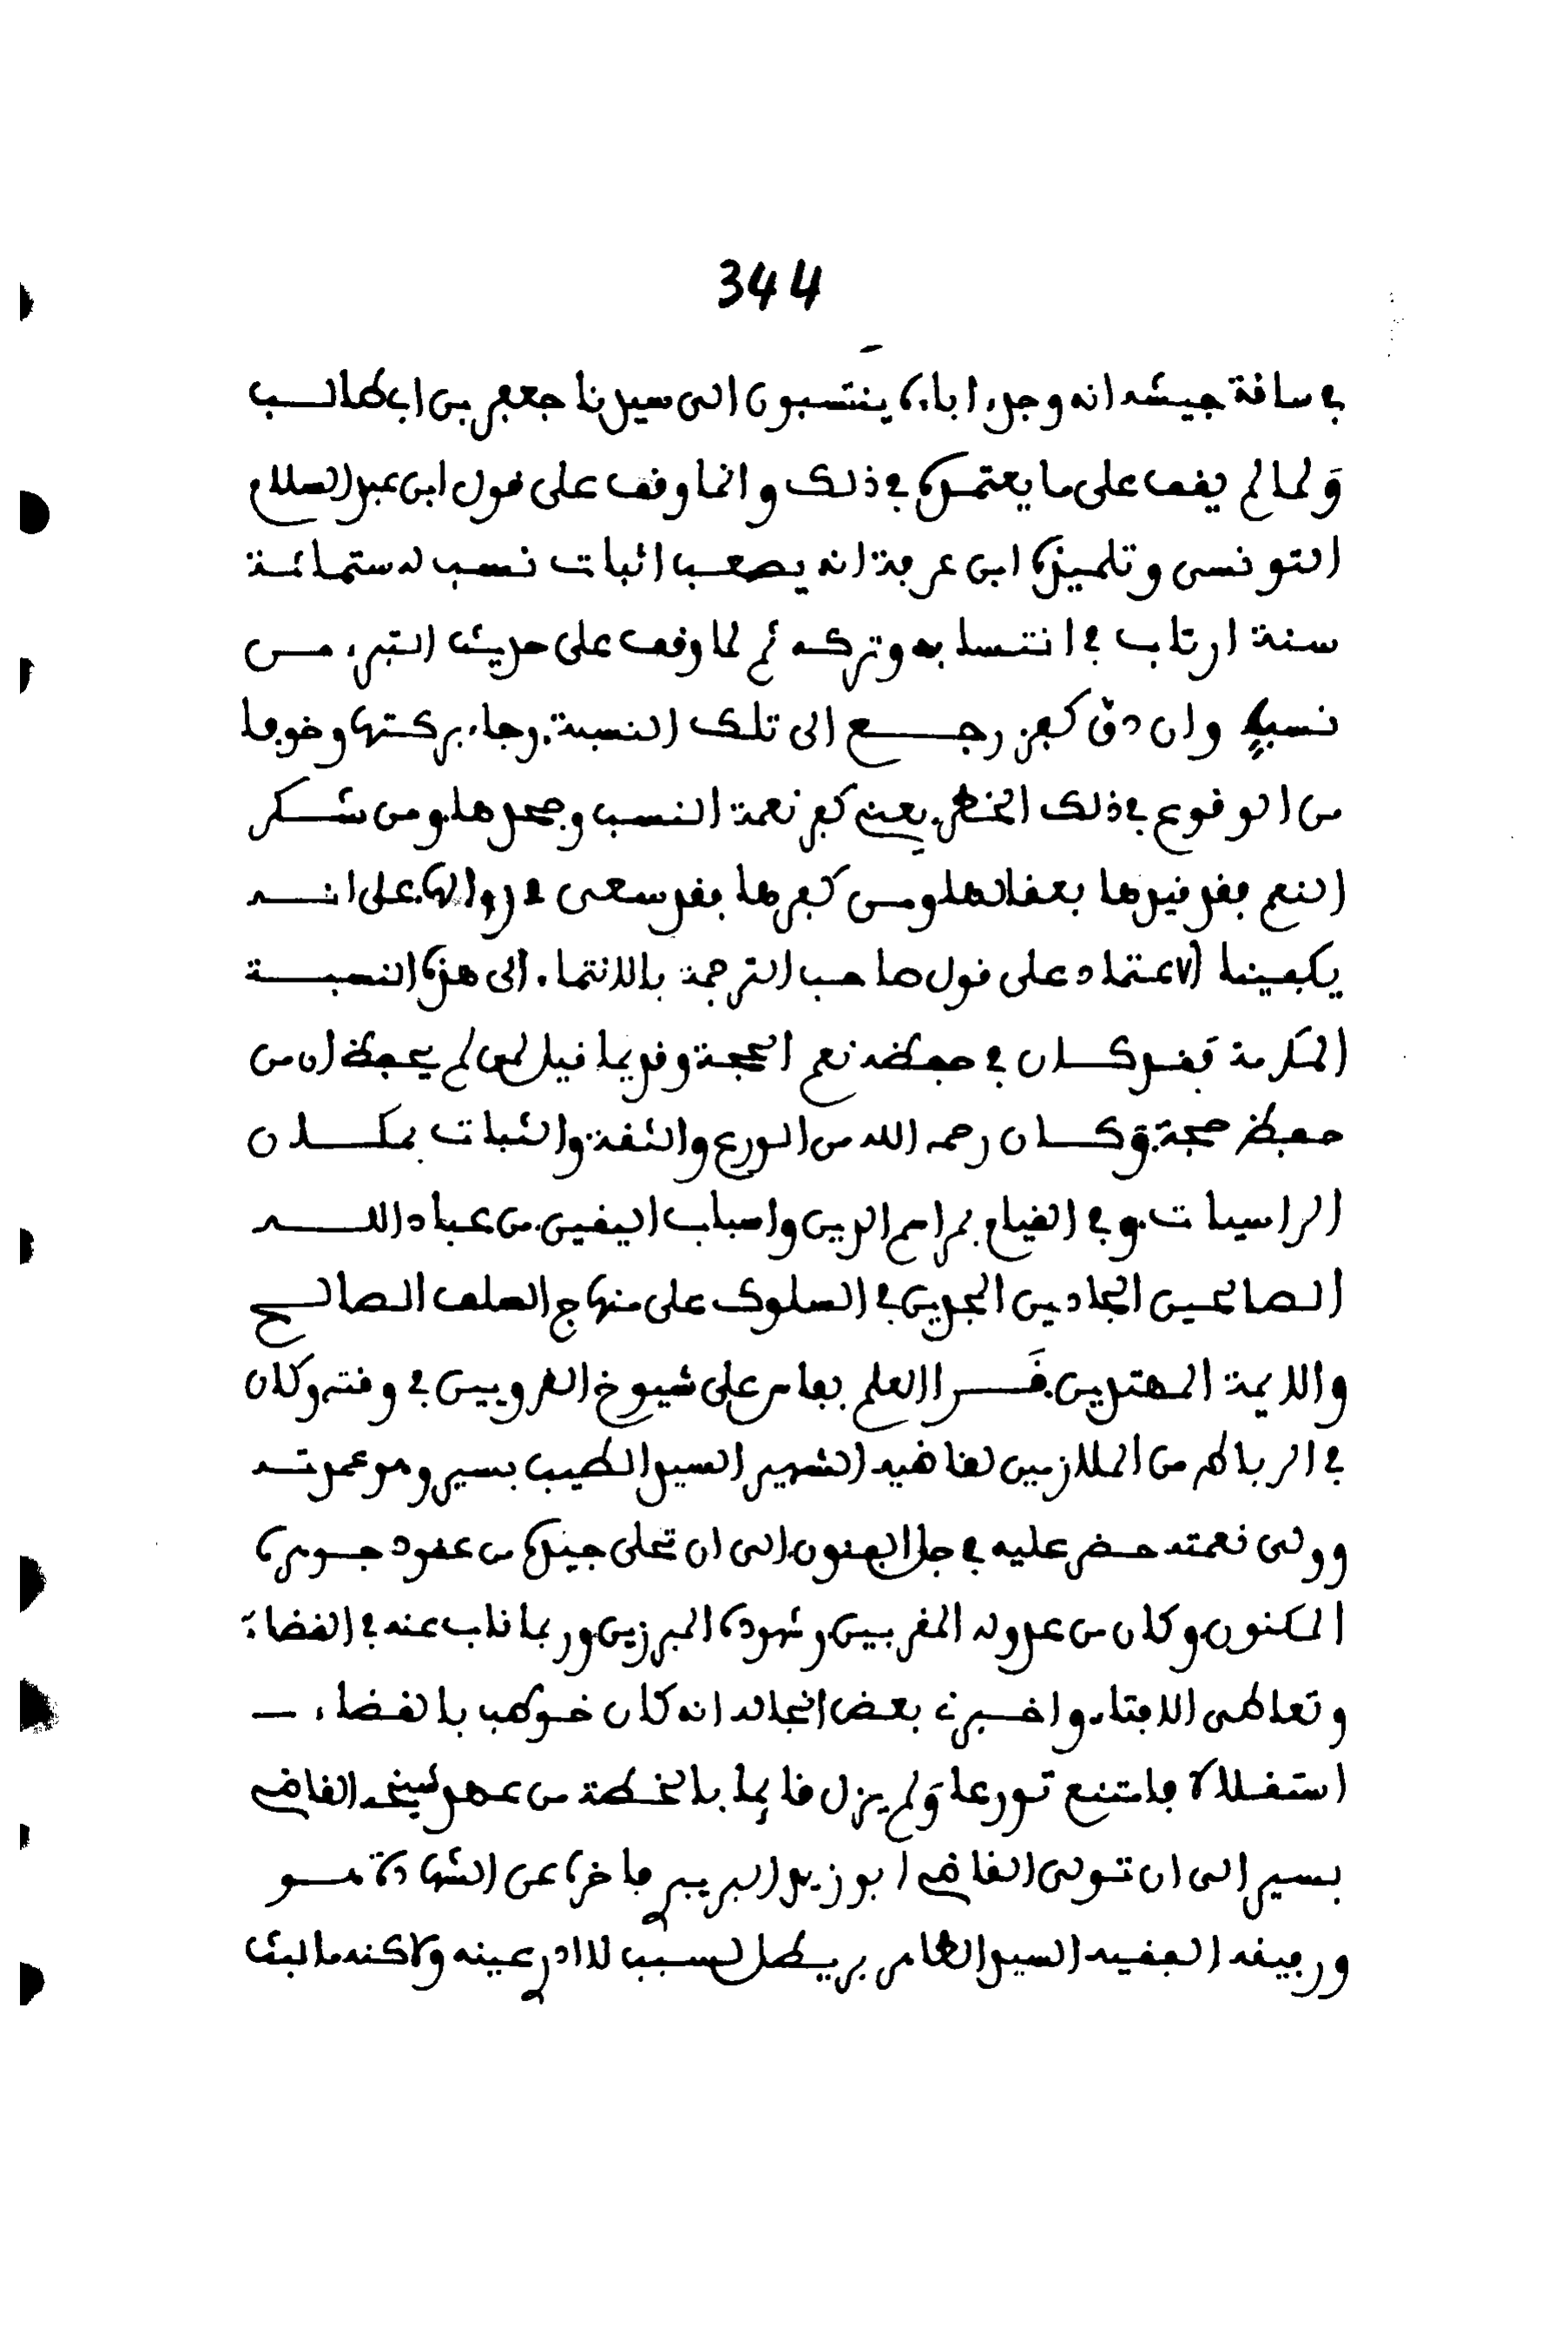 344
في ساقة جيشه انه وجد اباءه ينتسبون الى سيدنا جعفر بن ابي طالب
ولما لم يقف على ما يعتمده في ذلك وانما وقف على قول ابن عبد السلام
التونسي وتلميذه ابن عرفة انه يصعب اثبات نسب له ستمائة
سنة ارتاب في انتسابه وتركه ثم لما وقف على حديث التبرء من
نسب وان دق كفر رجع الى تلك النسبة. رجاء بركتها وخوفا
من الوقوع في ذلك الخطر. يعني كفر نعمة النسب وجحدها. ومن شكر
النعم فقد قيدها بعقالها ومن كفرها فقد سعى في زوالها. على انه
يكفينا الاعتماد على قول صاحب الترجمة بالانتماء. الى هذه النسبة
المكرمة فقد كان في حفظه نعم الحجة وقديما قيل لمن لم يحفظ ان من
حفظ حجة. وكان رحمه الله من الورع والثقة والثبات بمكان
الراسيات. وفي القيام بمراسم الدين واسباب اليقين. من عباد الله
الصالحين الجادين المجدين في السلوك على منهاج السلف الصالح
والايمة المهتدين. قرا العلم بفاس على شيوخ القرويين في وقته وكان
في الرباط من الملازمين لقاضيه الشهير السيد الطيب بسير وهو عمدته
وولى نعمته حضر عليه في جل الفنون. الى ان تحلى جيده من عقود جوهره
المكنون. وكان من عدوله المقربين. وشهوده المبرزين وربما ناب عنه في القضاء
وتعاطى الافتاء. واخبرني بعض انجاله انه كان خوطب بالقضاء. —
استقلالا فامتنع تورعا ولم يزل قائما بالخطة من عهد شيخه القاضي
بسير الى ان تولى القاضي ابو زيد البريبر فاخره عن الشهادة هو
ورفيقه الفقيه السيد الطاهر بريطل لسبب لا ادر عينه ولاكنه ما لبث